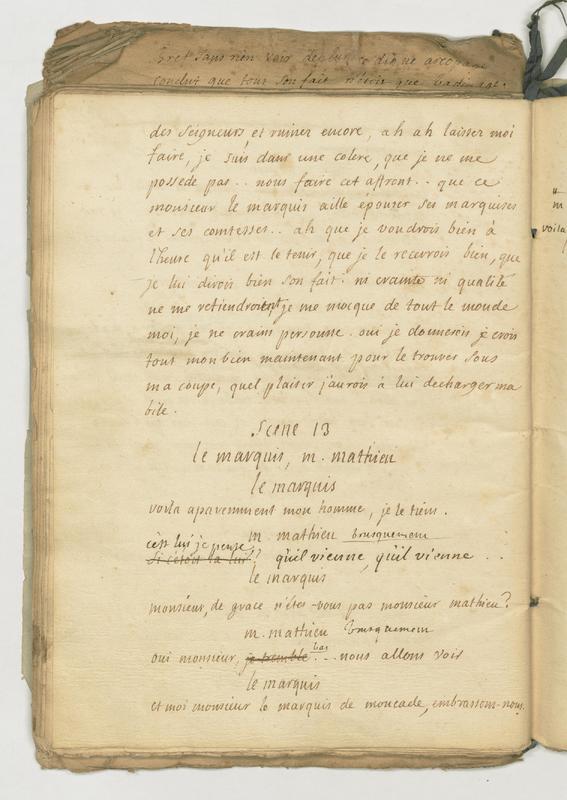 Bret sans rien voir de plus ce digne
conclut que tout son fait n'étoit que badinage.
des seigneurs et ruiner encore, ah ah laissez moi
faire, je suis dans une colere, que je ne me
possede pas .. nous faire cet affront .. que ce
monsieur le marquis aille épouser ses marquises
et ses comtesses .. ah que je voudrois bien à
l'heure qu'il est le tenir, que je le recevrois bien, que
je lui dirois bien son fait! ni crainte ni qualité
ne me retiendroient, je me mocque de tout le monde
moi, je ne crains personne. oui je donnerois je crois
tout mon bien maintenant pour le trouver sous
ma coupe, quel plaisir j'aurois à lui decharger ma
bile.
Scene 13
le marquis, m. mathieu
le marquis
voila apparemment mon homme, je le tiens.
m. mathieu brusquement
c'est lui je pense,
si c'étoit la lui? qu'il vienne, qu'il vienne ...
le marquis
monsieur, de grace n'étes-vous pas monsieur mathieu?
m. mathieu brusquement
oui monsieur, je tremble bas ... nous allons voir
le marquis
et moi monsieur le marquis de moncade, embrassom-nous.
u
m
voila